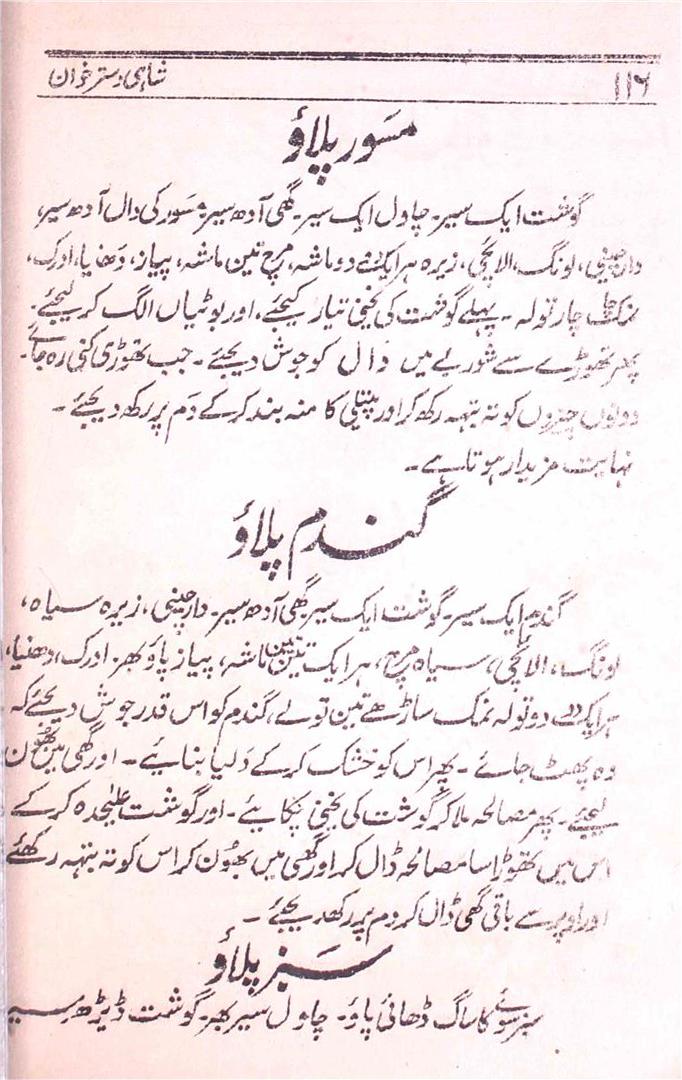 ۱۱۶
شاہی دسترخوان
مسور پلاؤ
گوشت ایک سیر۔ چاول ایک سیر۔ گھی آدھ سیر۔ مسور کی دال آدھ سیر،
دارچینی، لونگ، الائچی، زیرہ ہر ایک دو ماشہ، مرچ تین ماشہ، پیاز، دھنیا، ادرک،
نمک چار تولہ۔ پہلے گوشت کی یخنی تیار کیجئے، اور بوٹیاں الگ کر لیجئے۔
پھر تھوڑے سے شوربے میں دال کو جوش دیجئے۔ جب تھوڑی کنی رہ جائے۔
دونوں چیزوں کو تہ بتہہ رکھ کر اور پتیلی کا منہ بند کر کے دم پر رکھ دیجئے۔
نہایت مزیدار ہوتا ہے۔
گندم پلاؤ
گندم ایک سیر۔ گوشت ایک سیر گھی آدھ سیر۔ دارچینی، زیرہ سیاہ،
لونگ، الائچی، سیاہ مرچ، ہر ایک تین تین ماشہ، پیاز پاؤ بھر۔ ادرک، دھنیا،
ہر ایک دو تولہ نمک ساڑھے تین تولے، گندم کو اس قدر جوش دیجئے کہ
وہ پھٹ جائے۔ پھر اس کو خشک کر کے دلیا بنائیے۔ اور گھی میں بھون
لیجئے۔ پھر مصالحہ ملا کر گوشت کی یخنی پکائیے۔ اور گوشت علیٰحدہ کر کے
اس میں تھوڑا سا مصالحہ ڈال کر اور گھی میں بھون کر اس کو تہ بتہہ رکھئے
اور اوپر سے باقی گھی ڈال کر دم پر رکھدیجئے۔
سبز پلاؤ
سبز سوئے کا ساگ ڈھائی پاؤ۔ چاول سیر بھر۔ گوشت ڈیڑھ سیر